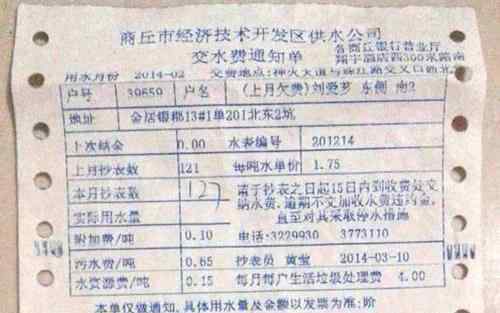 商丘市经济技术开发区供水公司
交水费通知单
各商丘银行营业厅
用水月份 2014-02 交费地点:神火大道与珠江路交叉口西北
户号 39659 户名 (上月欠费)刘爱芝 东侧 南2
地址 金居银都13#1单201北东2坑
上次结余 0.00 水表编号 201214
上月抄表数 121 每吨水单价 1.75
本月抄表数 127 请于抄表之日起15日内到收费处交
纳水费,逾期不交加收水费违约金,
实际用水量 直至对其采取停水措施
附加费/吨 0.10 电话:3229930 3773110
污水费/吨 0.65 抄表员 黄莹 2014-03-10
水资源费/吨 0.15 每月每户生活垃圾处理费 4.00
本单仅做通知,具体用水量及金额以发票为准;阶